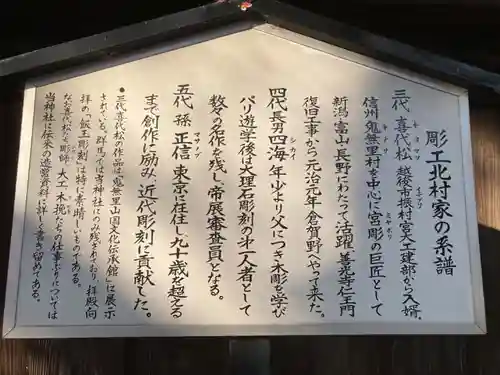 彫工北村家の系譜
三代 喜代松 越後市振村宮大工建部から入婿。
キヨマツ
タテブ
信州 鬼無里村を中心に宮彫の巨匠として
キナサ
ミヤボリ
新潟・富山・長野にわたって活躍 善光寺仁王門
復旧工事から元治元年倉賀野へやって来た。
四代 長男 四海 年少より父につき木彫を学び
シカイ
パリ遊学後は大理石彫刻の第一人者として
数々の名作を残し帝展審査員となる。
五代 孫 正信 東京に在住し九十歳を超える
マサノブ
まで創作に励み、近代彫刻に貢献した。
●三代 喜代松の作品は「鬼無里山国文化伝承館」に展示
されている。群馬では当神社にのみ残されており 拝殿向
拝の「飯玉彫刻」は特に素晴しいものである。
なお喜代松たち彫師、大工、木挽たちの仕事ぶりについては
当神社に伝来の造営資料に詳しく書き留めてある。